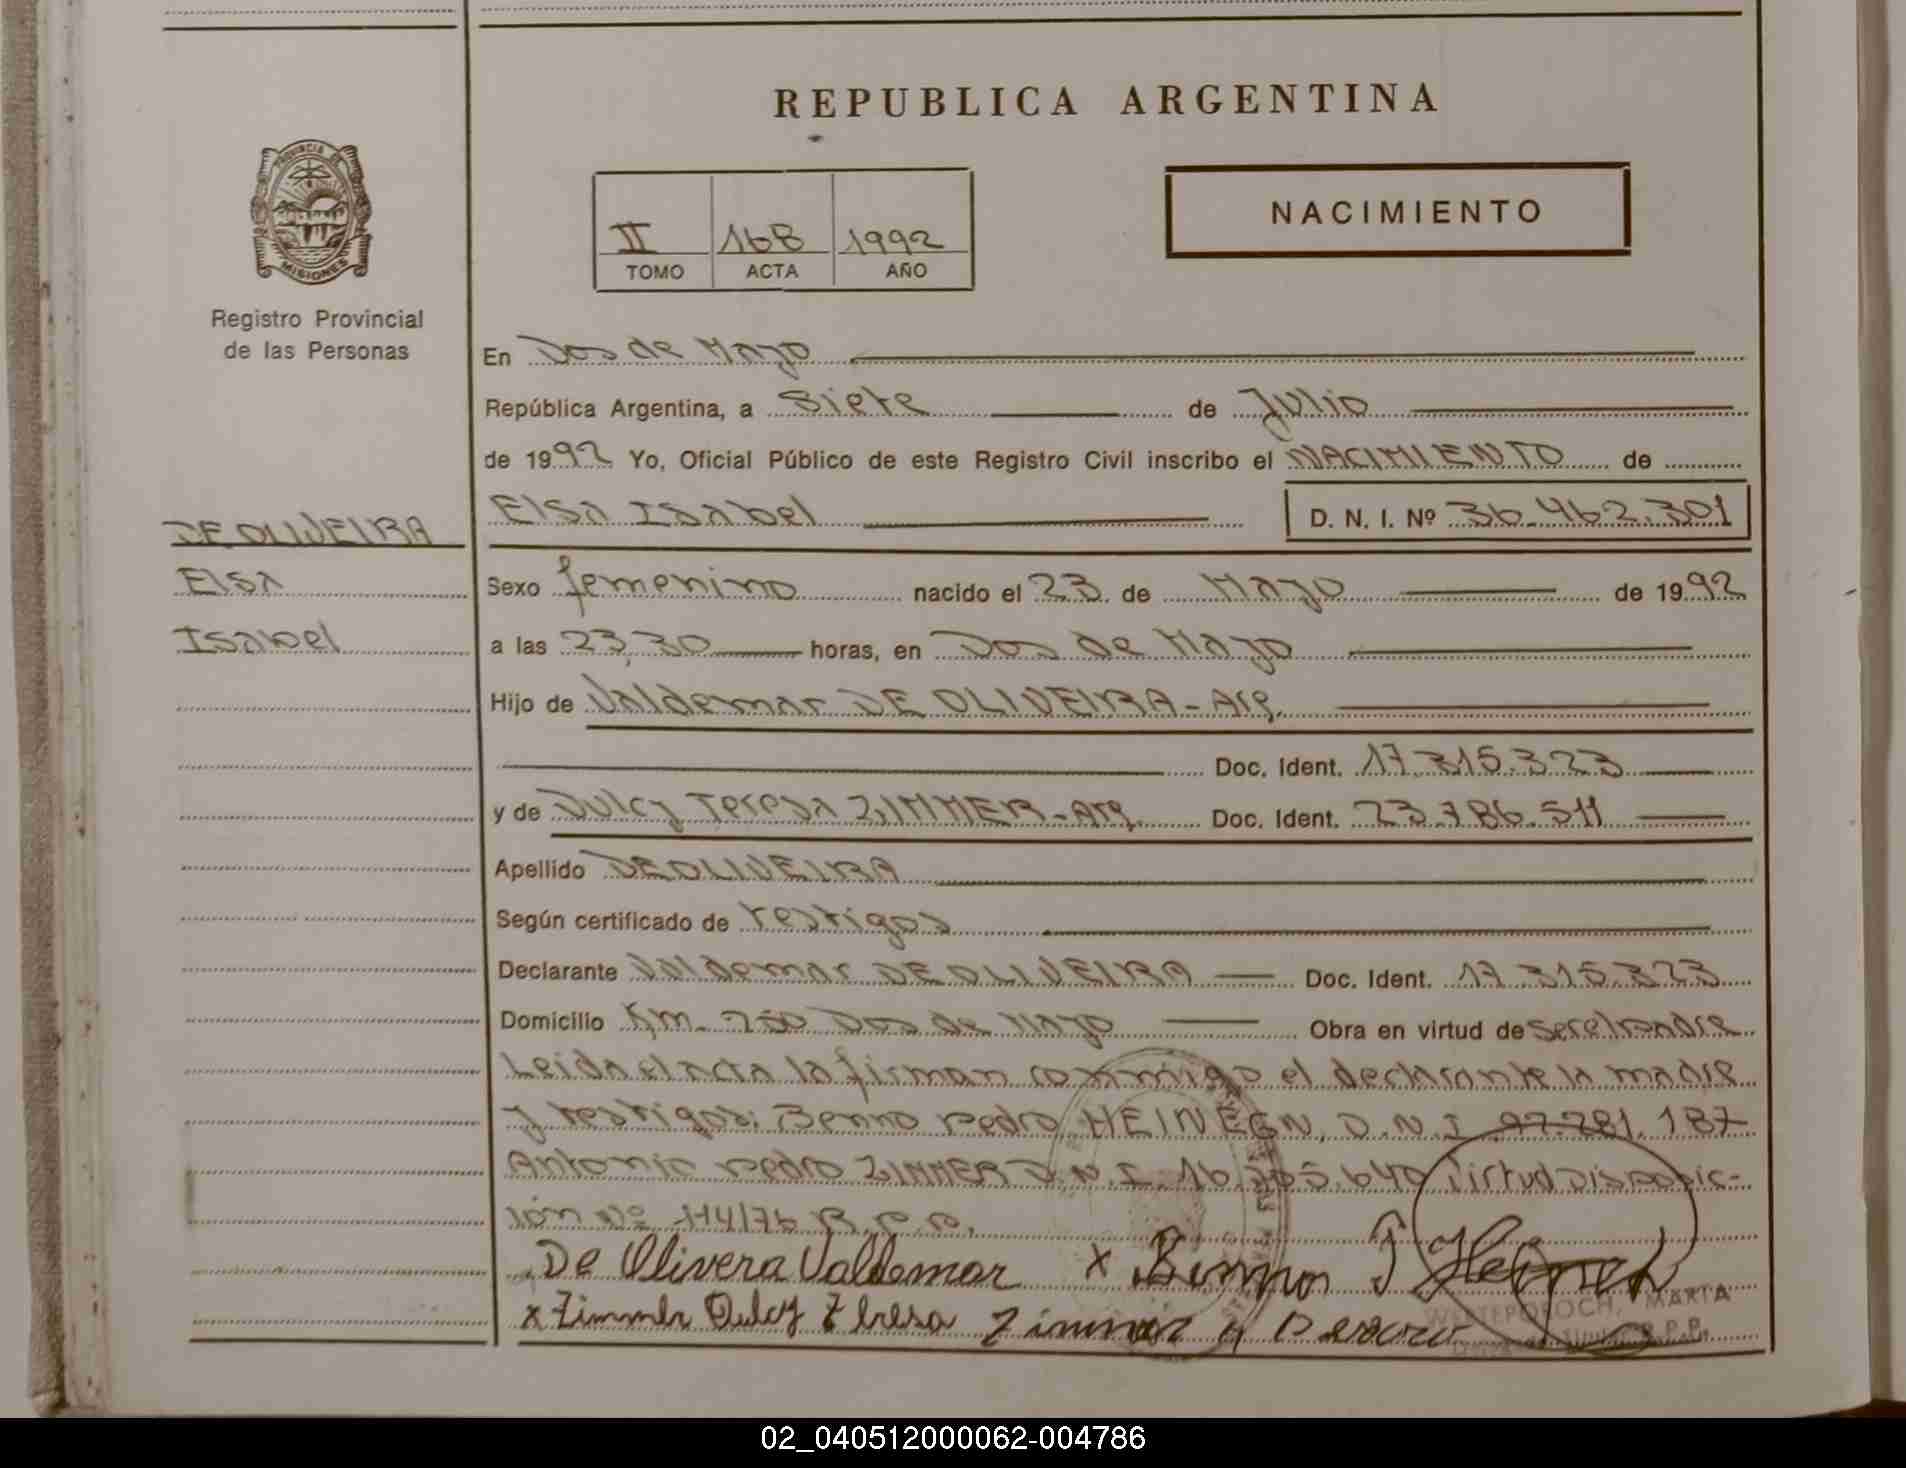 REPUBLICA ARGENTINA
PROVINCIA DE
MISIONES
Registro Provincial
de las Personas
II 168 1992
TOMO ACTA AÑO
NACIMIENTO
En Dos de Mayo
República Argentina, a Siete de Julio
de 1992 Yo, Oficial Público de este Registro Civil inscribo el NACIMIENTO de
Elsa Isabel D. N. I. Nº 36.462.301
DE OLIVEIRA
Elsa
Isabel
Sexo femenino nacido el 23 de Mayo de 1992
a las 23,30 horas, en Dos de Mayo
Hijo de Valdemar DE OLIVEIRA - Arg.
Doc. Ident. 17.315.323
y de Dulcy Teresa ZIMMER - Arg. Doc. Ident. 23.786.511
Apellido DE OLIVEIRA
Según certificado de testigos
Declarante Valdemar DE OLIVEIRA Doc. Ident. 17.315.323
Domicilio Km. 250 Dos de Mayo Obra en virtud de ser el padre
Leida el acta la firman conmigo el declarante la madre
y testigos: Benno Pedro D.N.I. 281.187
Antonio Pedro ZIMMER D.N.I. 16.365.640 Virtud Disposic-
ión Nº 114/76 R.P.P.
De Olivera Valdemar x Benno P
x Zimmer Dulcy Teresa Zimmer A
MARTA
R.P.P.
02_040512000062-004786